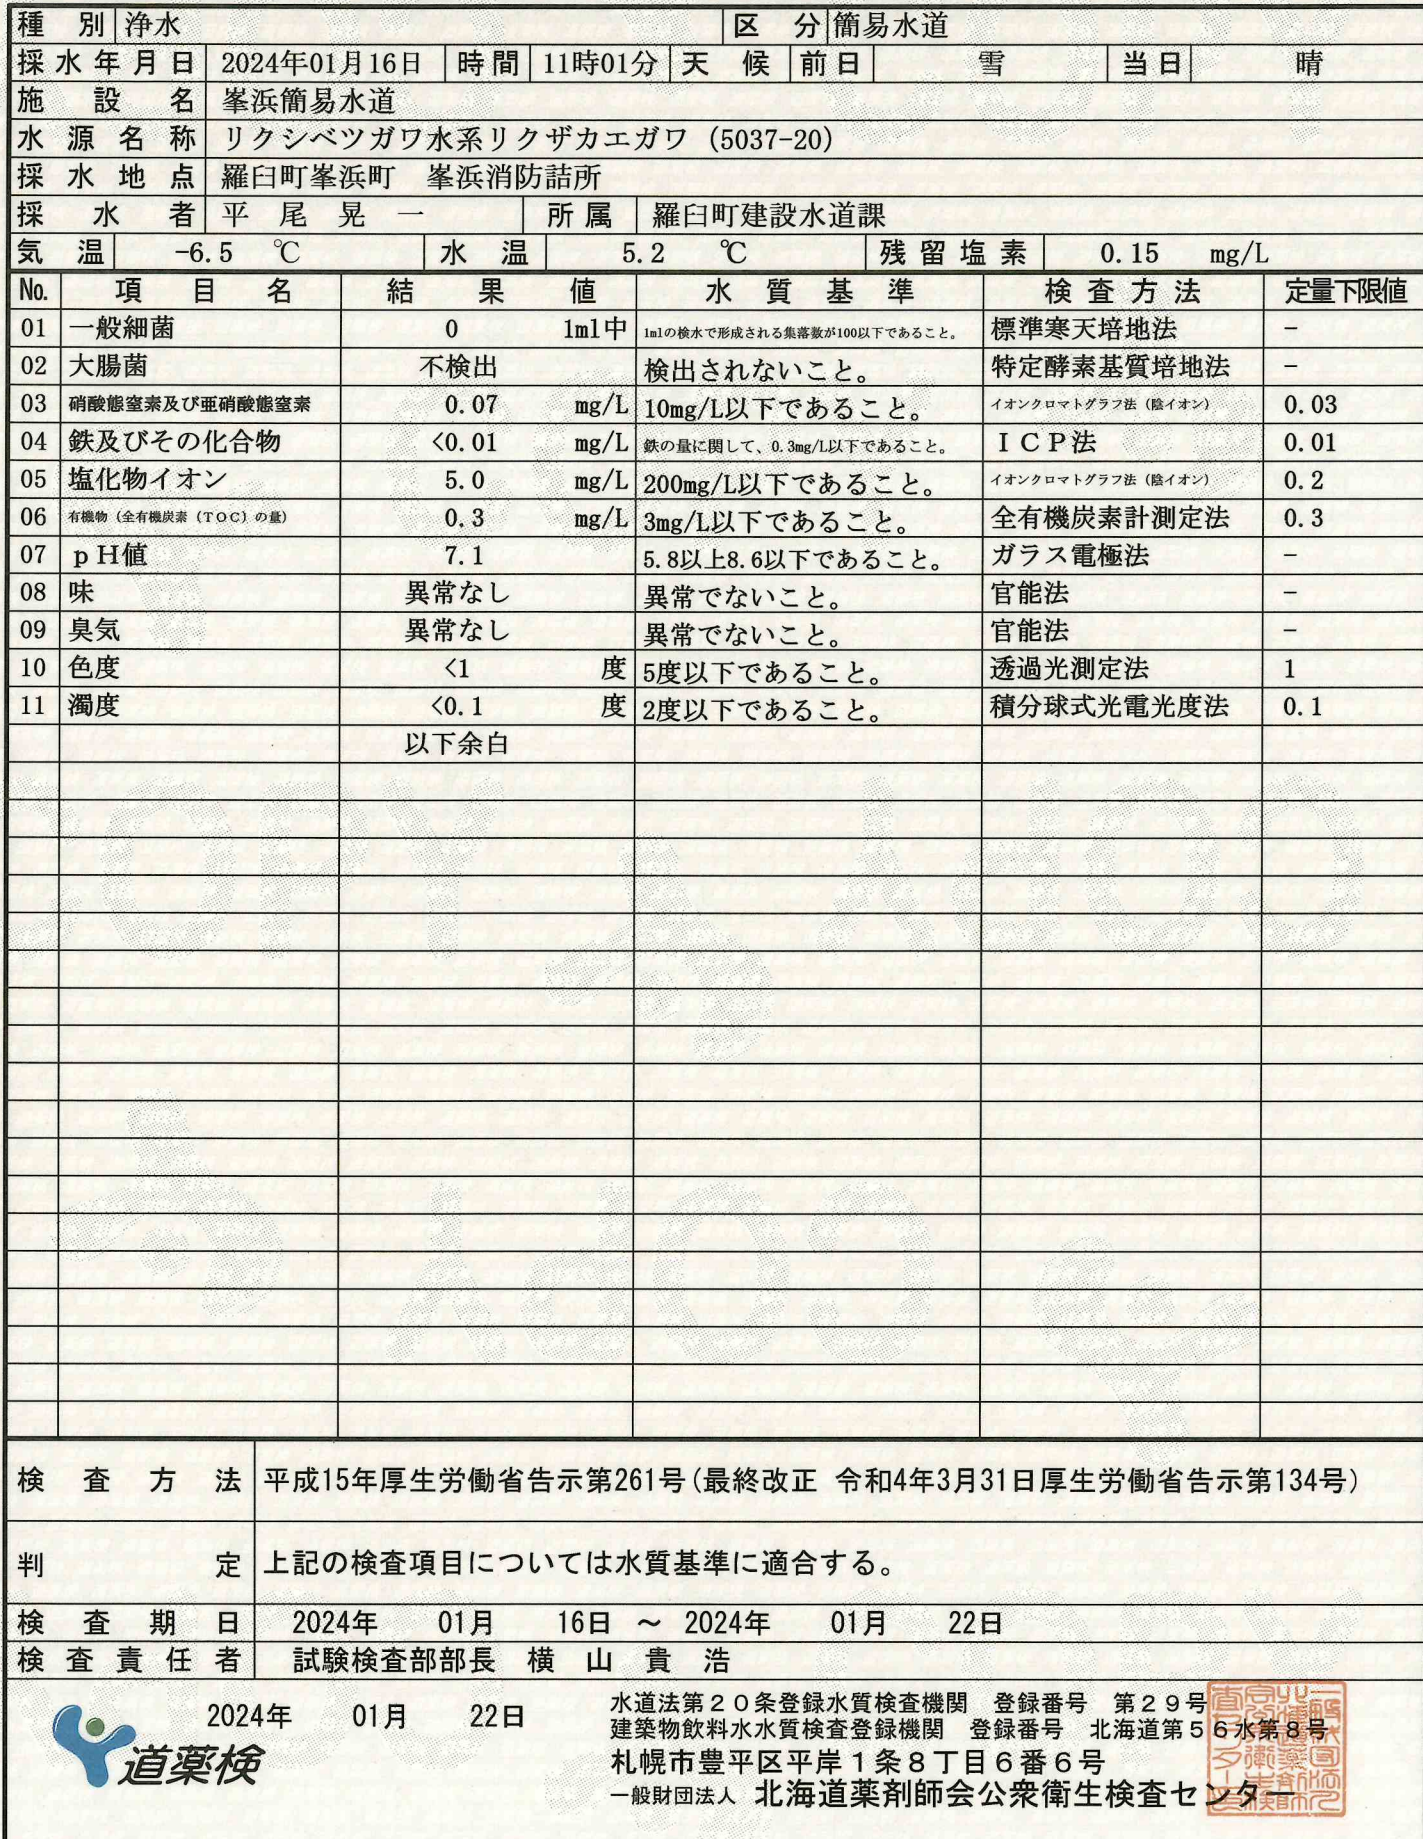 種別 浄水 区分 簡易水道
採水年月日 2024年01月16日 時間 11時01分 天候 前日 雪 当日 晴
施設名 峯浜簡易水道
水源名称 リクシベツガワ水系リクザカエガワ (5037-20)
採水地点 羅臼町峯浜町 峯浜消防詰所
採水者 平尾晃一 所属 羅臼町建設水道課
気温 -6.5 ℃ 水温 5.2 ℃ 残留塩素 0.15 mg/L
No. 項目名 結果値 水質基準 検査方法 定量下限値
01 一般細菌 0 1ml中 1mlの検水で形成される集落数が100以下であること。 標準寒天培地法 -
02 大腸菌 不検出 検出されないこと。 特定酵素基質培地法 -
03 硝酸態窒素及び亜硝酸態窒素 0.07 mg/L 10mg/L以下であること。 イオンクロマトグラフ法(陰イオン) 0.03
04 鉄及びその化合物 <0.01 mg/L 鉄の量に関して、0.3mg/L以下であること。 ICP法 0.01
05 塩化物イオン 5.0 mg/L 200mg/L以下であること。 イオンクロマトグラフ法(陰イオン) 0.2
06 有機物(全有機炭素(TOC)の量) 0.3 mg/L 3mg/L以下であること。 全有機炭素計測定法 0.3
07 pH値 7.1 5.8以上8.6以下であること。 ガラス電極法 -
08 味 異常なし 異常でないこと。 官能法 -
09 臭気 異常なし 異常でないこと。 官能法 -
10 色度 <1 度 5度以下であること。 透過光測定法 1
11 濁度 <0.1 度 2度以下であること。 積分球式光電光度法 0.1
以下余白
検査方法 平成15年厚生労働省告示第261号(最終改正 令和4年3月31日厚生労働省告示第134号)
判定 上記の検査項目については水質基準に適合する。
検査期日 2024年 01月 16日 ～ 2024年 01月 22日
検査責任者 試験検査部部長 横山貴浩
2024年 01月 22日
道薬検
水道法第20条登録水質検査機関 登録番号 第29号
建築物飲料水水質検査登録機関 登録番号 北海道第56水第8号
札幌市豊平区平岸1条8丁目6番6号
一般財団法人 北海道薬剤師会公衆衛生検査センター